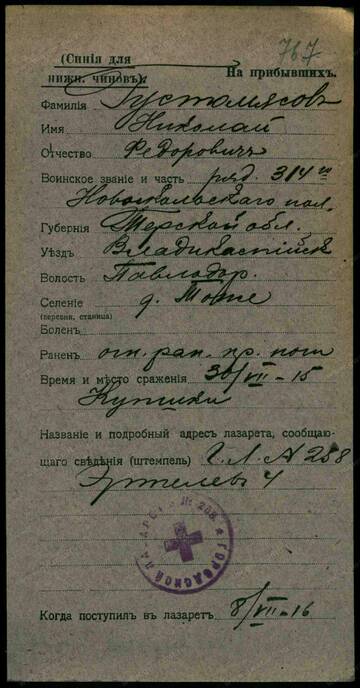 767
(Синія для
нижн. чиновъ).
На прибывшихъ.
Фамилія Густомясовъ
Имя Николай
Отчество Федоровичъ
Воинское званіе и часть ряд. 314го
Новооскольскаго пол.
Губернія Терской обл.
Уѣздъ
Волость Павлодор.
Селеніе д. Тоже
(деревня, станица)
Боленъ
Раненъ огн. ран. пр. ноги
Время и мѣсто сраженія 30/VII-15
Названіе и подробный адресъ лазарета, сообщаю-
щаго свѣдѣнія (штемпель) Г. Л. А 288
Эртелевъ 4
ГОРОДСКОЙ ЛАЗАРЕТЪ №
Когда поступилъ въ лазаретъ 8/VII-16